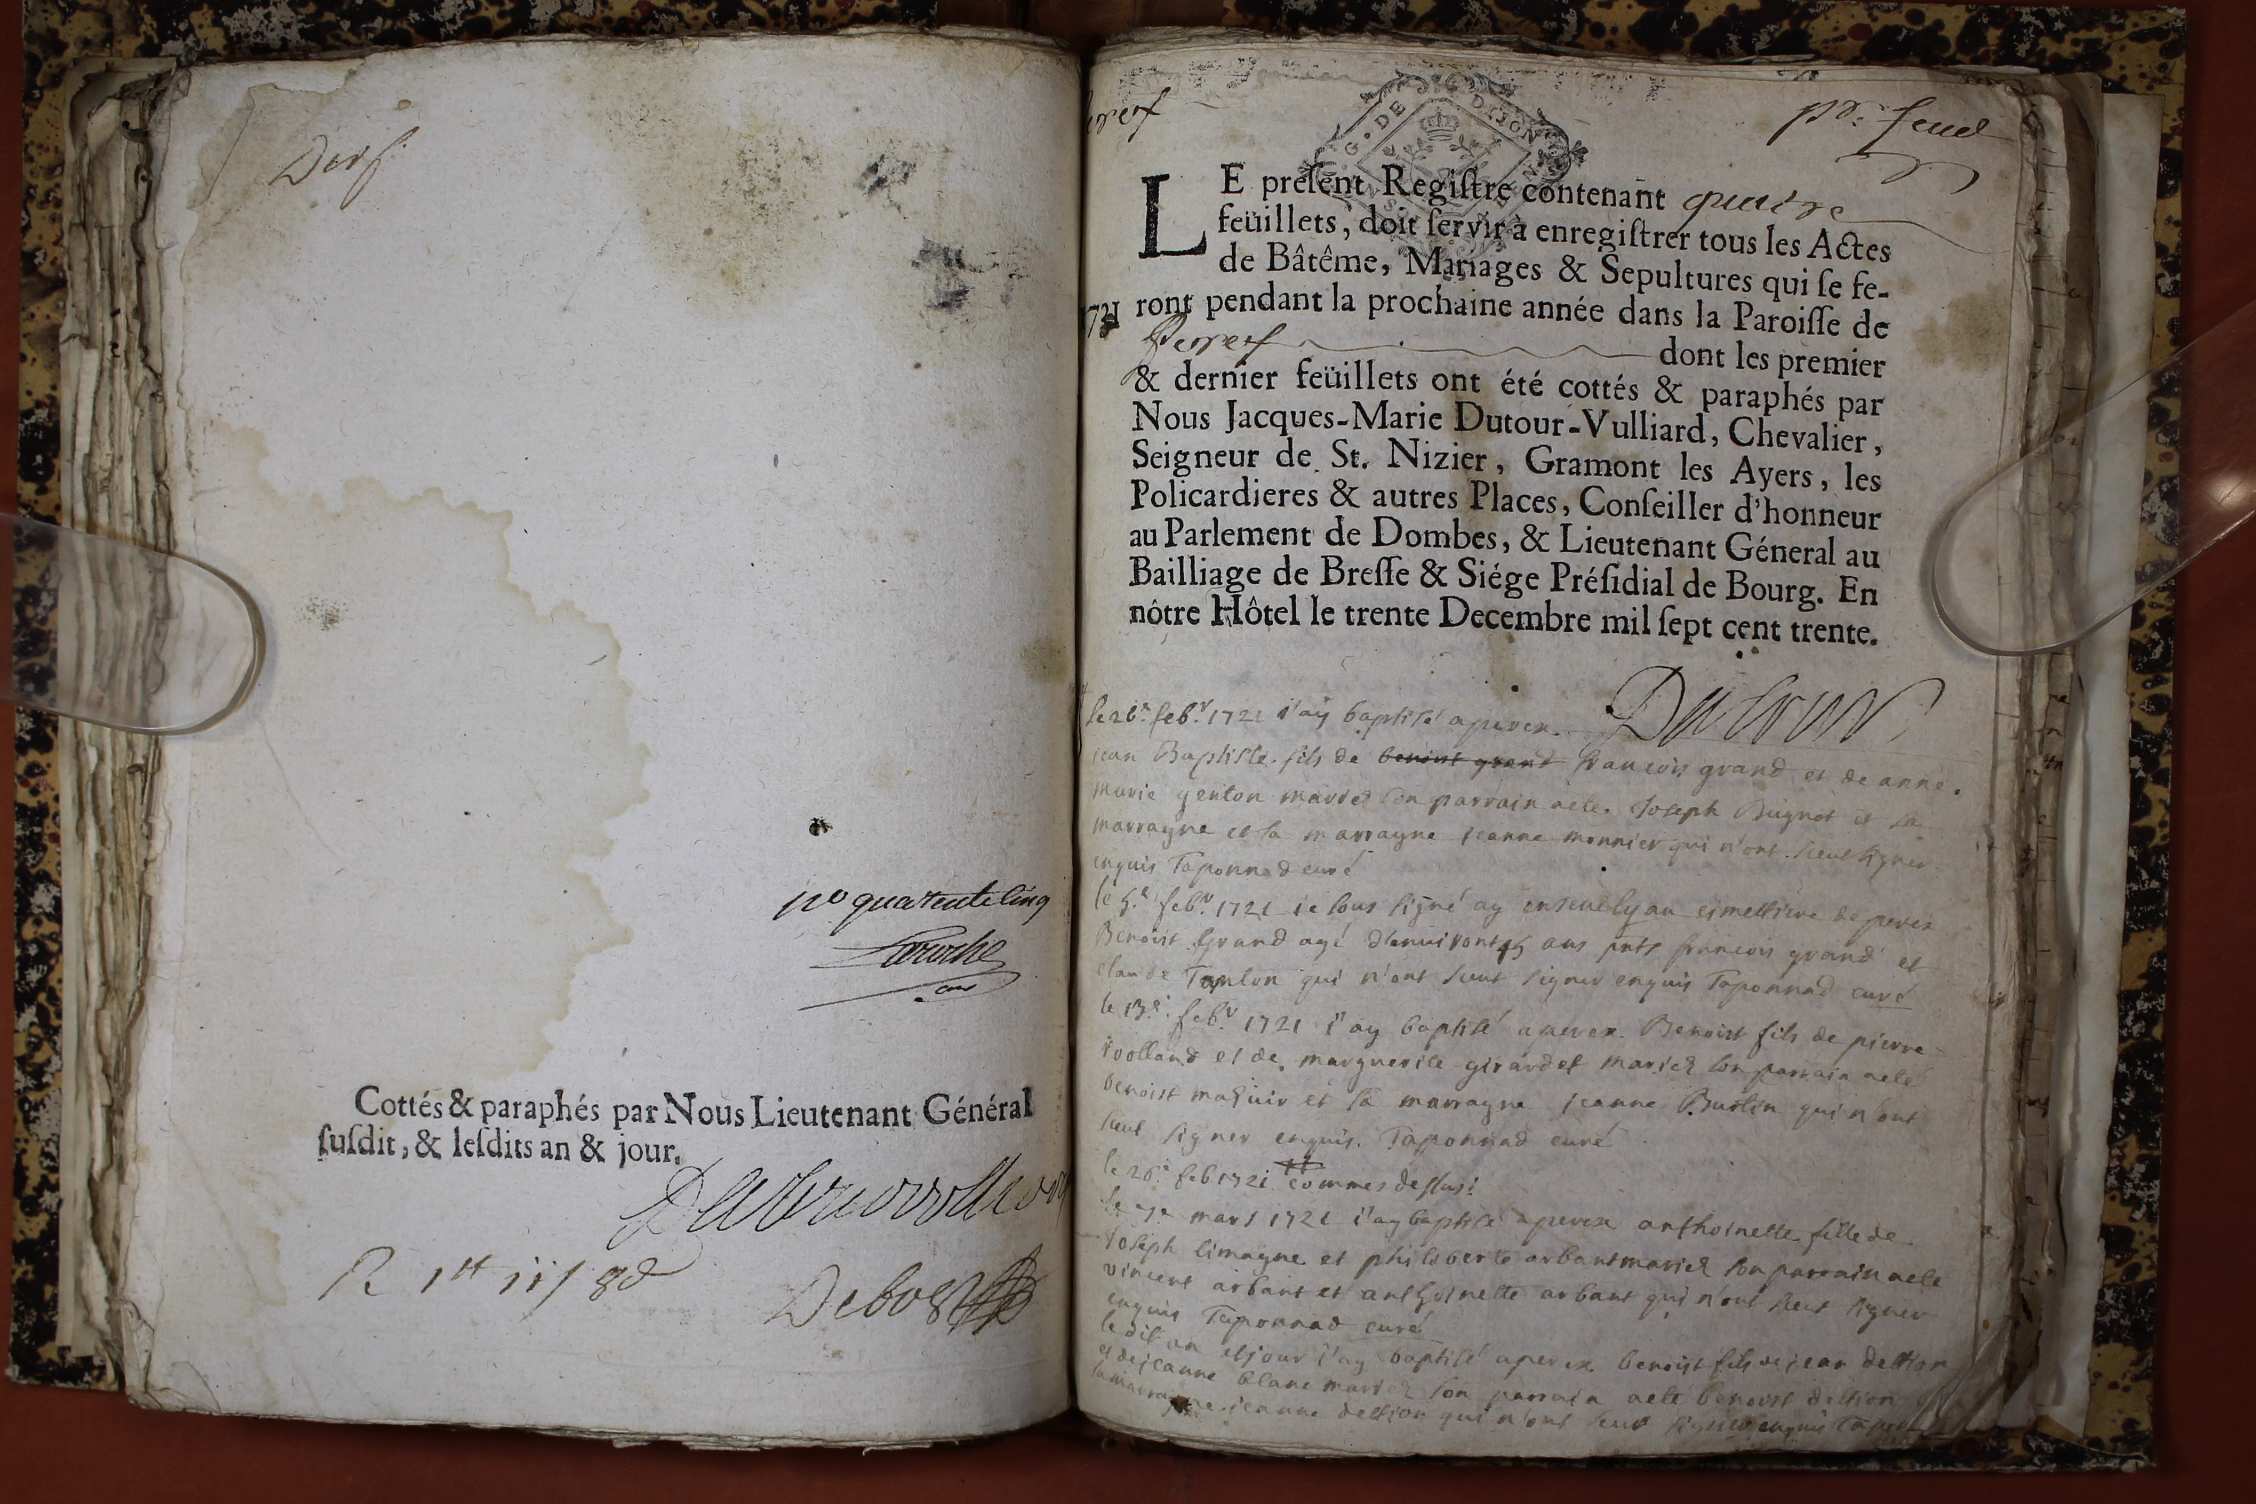 Der f.
no quarente cinq
Laroche
Cottés & paraphés par Nous Lieutenant Général
ſuſdit, & leſdits an & jour.
R 1tt 11ſ 8d
Perex
pr. feuil
G. DE DIJON
LE preſent Regiſtre contenant quatre
feüillets, doit ſervir à enregiſtrer tous les Actes
de Bâtême, Mariages & Sepultures qui ſe fe-
1731 ront pendant la prochaine année dans la Paroiſſe de
Perex dont les premier
& dernier feüillets ont été cottés & paraphés par
Nous Jacques-Marie Dutour-Vulliard, Chevalier,
Seigneur de St. Nizier, Gramont les Ayers, les
Policardieres & autres Places, Conſeiller d'honneur
au Parlement de Dombes, & Lieutenant Géneral au
Bailliage de Breſſe & Siége Préſidial de Bourg. En
nôtre Hôtel le trente Decembre mil ſept cent trente.
Dutour
le 26e febr 1721 i'ay baptisé a perex
jean Baptiste fils de benoist grand francois grand et de anne
marie genton mariez son parrain aeté Joseph Bugnot et sa
marrayne et sa marrayne jeanne monnier qui n'ont sceut signer
enquis Taponnad curé
le 5e febr 1721 ie sous signé ay enseuely au cimettiere de perex
Benoist Grand agé d'enuiront ans pnts francois grand et
claude qui n'ont sceut signer enquis Taponnad curé
le 13e febr 1721 i'ay baptisé a perex Benoist fils de pierre
voolland et de marguerite girardet mariez son parrain aeté
benoist et sa marrayne jeanne Burtin qui n'ont
sceut signer enquis Taponnad curé
le 26e feb 1721 commes dessus
le 7e mars 1721 i'ay baptisé a perex anthoinette fille de
Joseph limagne et philiberte arbant mariez son parrain aeté
vincent arbant et anthoinette arbant qui n'ont sceut signer
enquis Taponnad curé
le dit an et jour i'ay baptisé a perex benoist fils de jean dettion
et de jeanne blanc mariez son parrain aeté benoist dettion
sa marrayne jeanne dettion qui n'ont sceut signer enquis Tapon